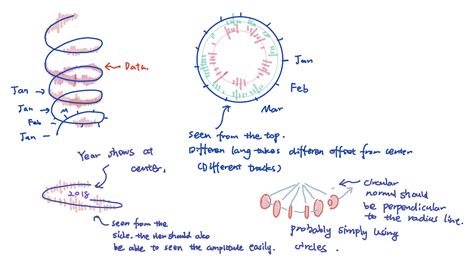 Data.
Jan
Jan
Feb
Jan
Jan
Feb
Mar
seen from the top.
Different lang takes differen offset from center
(Different tracks)
Year shows at
center.
2018
seen from the
side. the user should also
be able to seen the amplitude easily.
circular
normal should
be perpendicular
to the radius line.
probably simply using
circles.